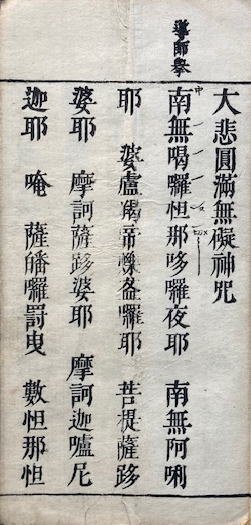 大悲圓滿無礙神咒
導師舉
中
南無喝囉怛那哆囉夜耶　南無阿唎
耶　婆盧羯帝爍盋囉耶　菩提薩跢
婆耶　摩訶薩跢婆耶　摩訶迦嚧尼
迦耶　唵　薩皤囉罰曳　數怛那怛